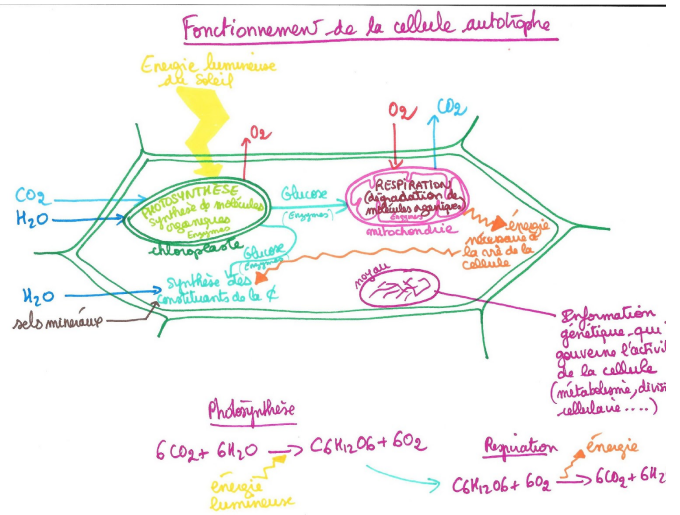 Fonctionnement de la cellule autotrophe
Energie lumineuse
du Soleil
O2
O2
CO2
CO2
H2O
PHOTOSYNTHÈSE
Synthèse de molécules
organiques
Enzymes
chloroplaste
Glucose
(Enzymes)
RESPIRATION
(dégradation de
molécules organiques)
Enzymes
mitochondrie
énergie
nécessaire à
la vie de la
cellule
Glucose
(Enzymes)
H2O
sels minéraux
Synthèse des
constituants de la ¢
noyau
Information
génétique qui
gouverne l'activi
de la cellule
(métabolisme, divis
cellulaire ....)
Photosynthèse
6CO2 + 6H2O → C6H12O6 + 6O2
énergie
lumineuse
Respiration
énergie
C6H12O6 + 6O2 → 6CO2 + 6H2